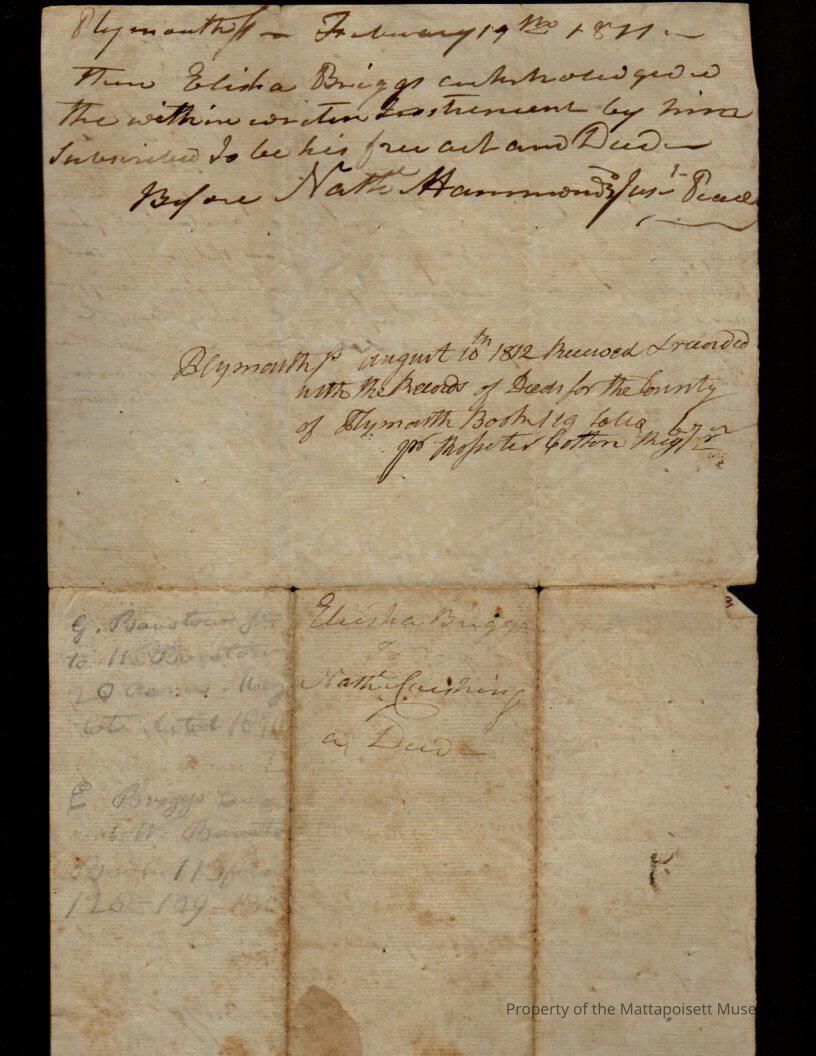 Plymouth ss — February 19th 1811 —
Then Elisha Briggs acknowledged
the within written Instrument by him
Subscribed to be his free act and Deed —
Before Nathl Hammond Just Peace
Plymouth ss August 10th 1812 Received & recorded
with the Records of Deeds for the County
of Plymouth Book 119 folio 67
pr Rosseter Cotton Regr
Elisha Briggs
To
Nathl Cushing
a Deed —
G. Barstow
to W. Barstow
dated
E Briggs
W. Barstow
Book 113
128-129
Property of the Mattapoisett Muse